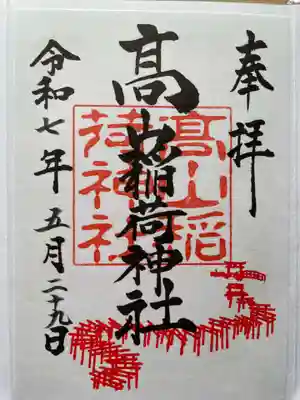 奉拝
髙山稲荷神社
髙山稲
荷神社
令和七年五月二十九日